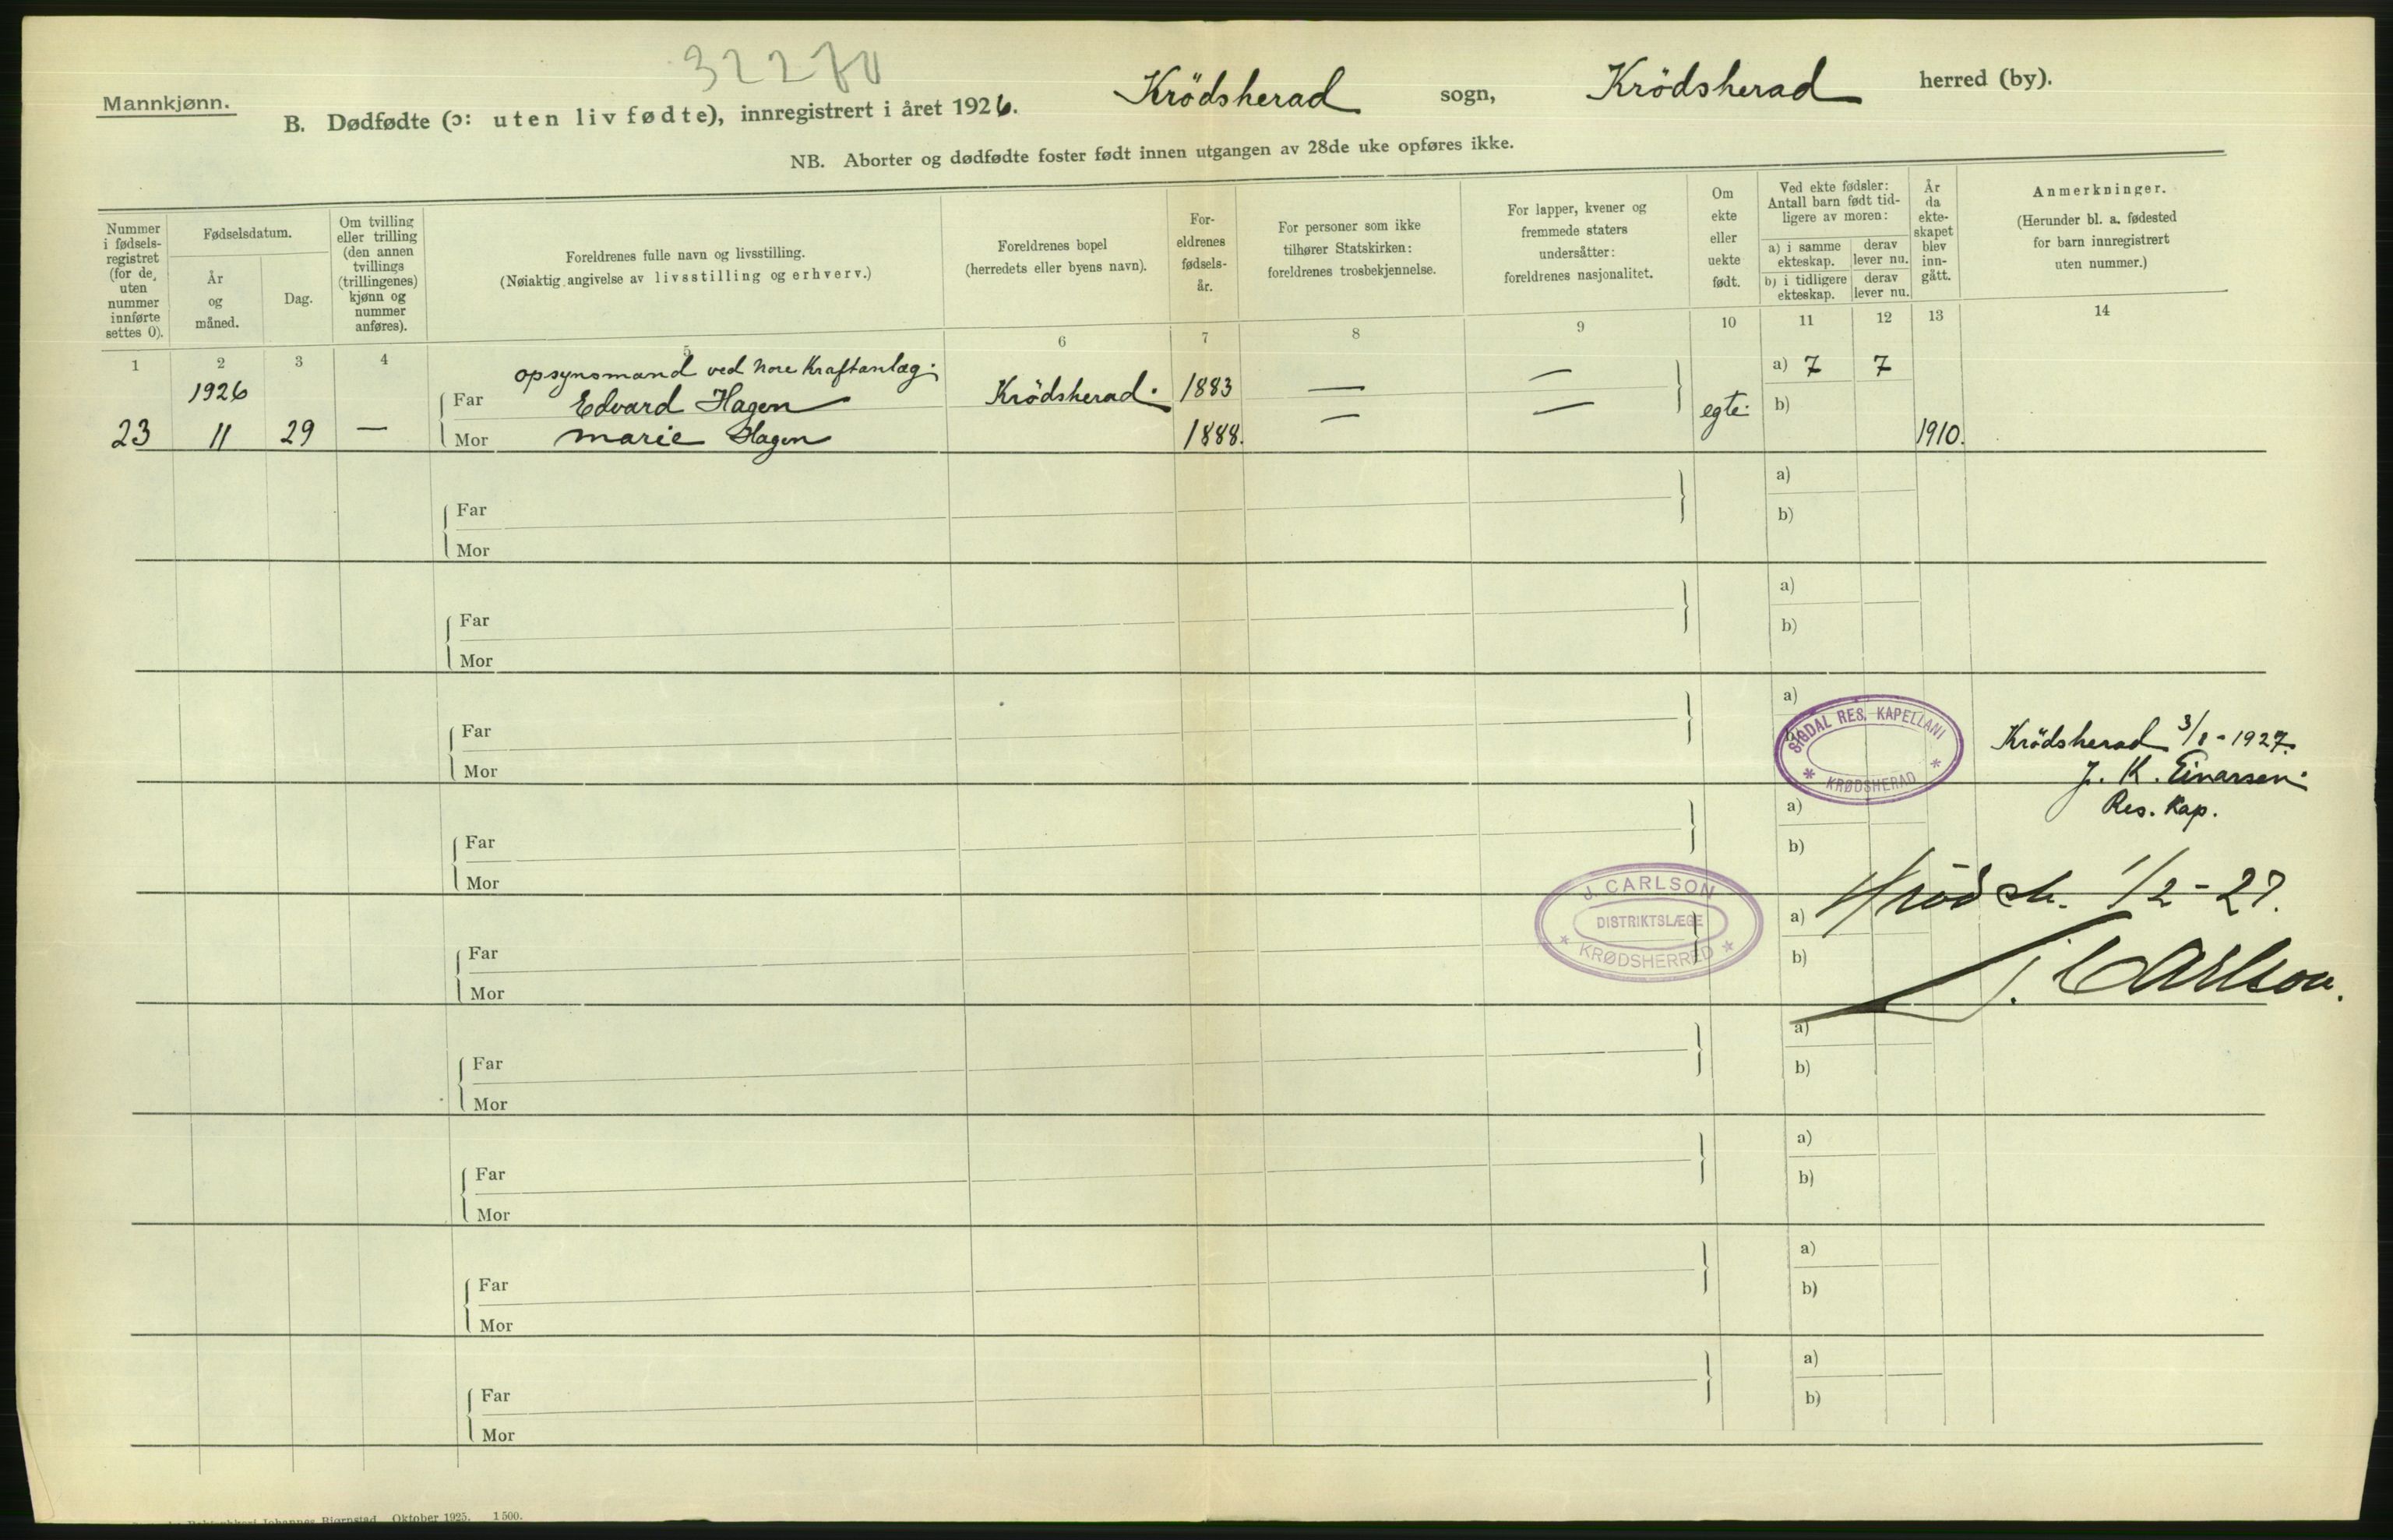 Mannkjønn.
B. Dødfødte (ɔ: uten liv fødte), innregistrert i året 1926. Krödsherad sogn, Krödsherad herred (by).
NB. Aborter og dødfødte foster født innen utgangen av 28de uke opføres ikke.
Nummer i fødsels-registret (for de, uten nummer innførte settes 0).
Fødselsdatum.
År og måned.
Dag.
Om tvilling eller trilling (den annen tvillings (trillingenes) kjønn og nummer anføres).
Foreldrenes fulle navn og livsstilling.
(Nøiaktig angivelse av livsstilling og erhverv.)
Foreldrenes bopel
(herredets eller byens navn).
For-eldrenes fødsels-år.
For personer som ikke tilhører Statskirken: foreldrenes trosbekjennelse.
For lapper, kvener og fremmede staters undersåtter: foreldrenes nasjonalitet.
Om ekte eller uekte født.
Ved ekte fødsler: Antall barn født tid-ligere av moren:
a) i samme ekteskap.
derav lever nu.
b) i tidligere ekteskap.
derav lever nu.
År da ekte-skapet blev inn-gått.
Anmerkninger.
(Herunder bl. a. fødested for barn innregistrert uten nummer.)
1 2 3 4 5 6 7 8 9 10 11 12 13 14
opsynsmand ved Nore Kraftanlæg.
1926 Far Edvard Hagen Krödsherad. 1883 — — egte. a) 7 7
b)
23 11 29 — Mor Marie Hagen 1888. — — 1910.
Far a)
Mor b)
Far a)
Mor b)
Far a)
Mor
SIGDAL RES. KAPELLANI
* KRØDSHERAD *
Krödsherad 3/1-1927.
J. K. Einarsen.
Res. Kap.
Far a)
Mor b)
J. CARLSON
DISTRIKTSLÆGE
* KRØDSHERRED *
Krödsh. 1/2-27.
J. Carlson.
Far a)
Mor b)
Far a)
Mor b)
Far a)
Mor b)
Far a)
Mor b)
Far a)
Mor b)
Johannes Bjørnstad. Oktober 1925. 1500.